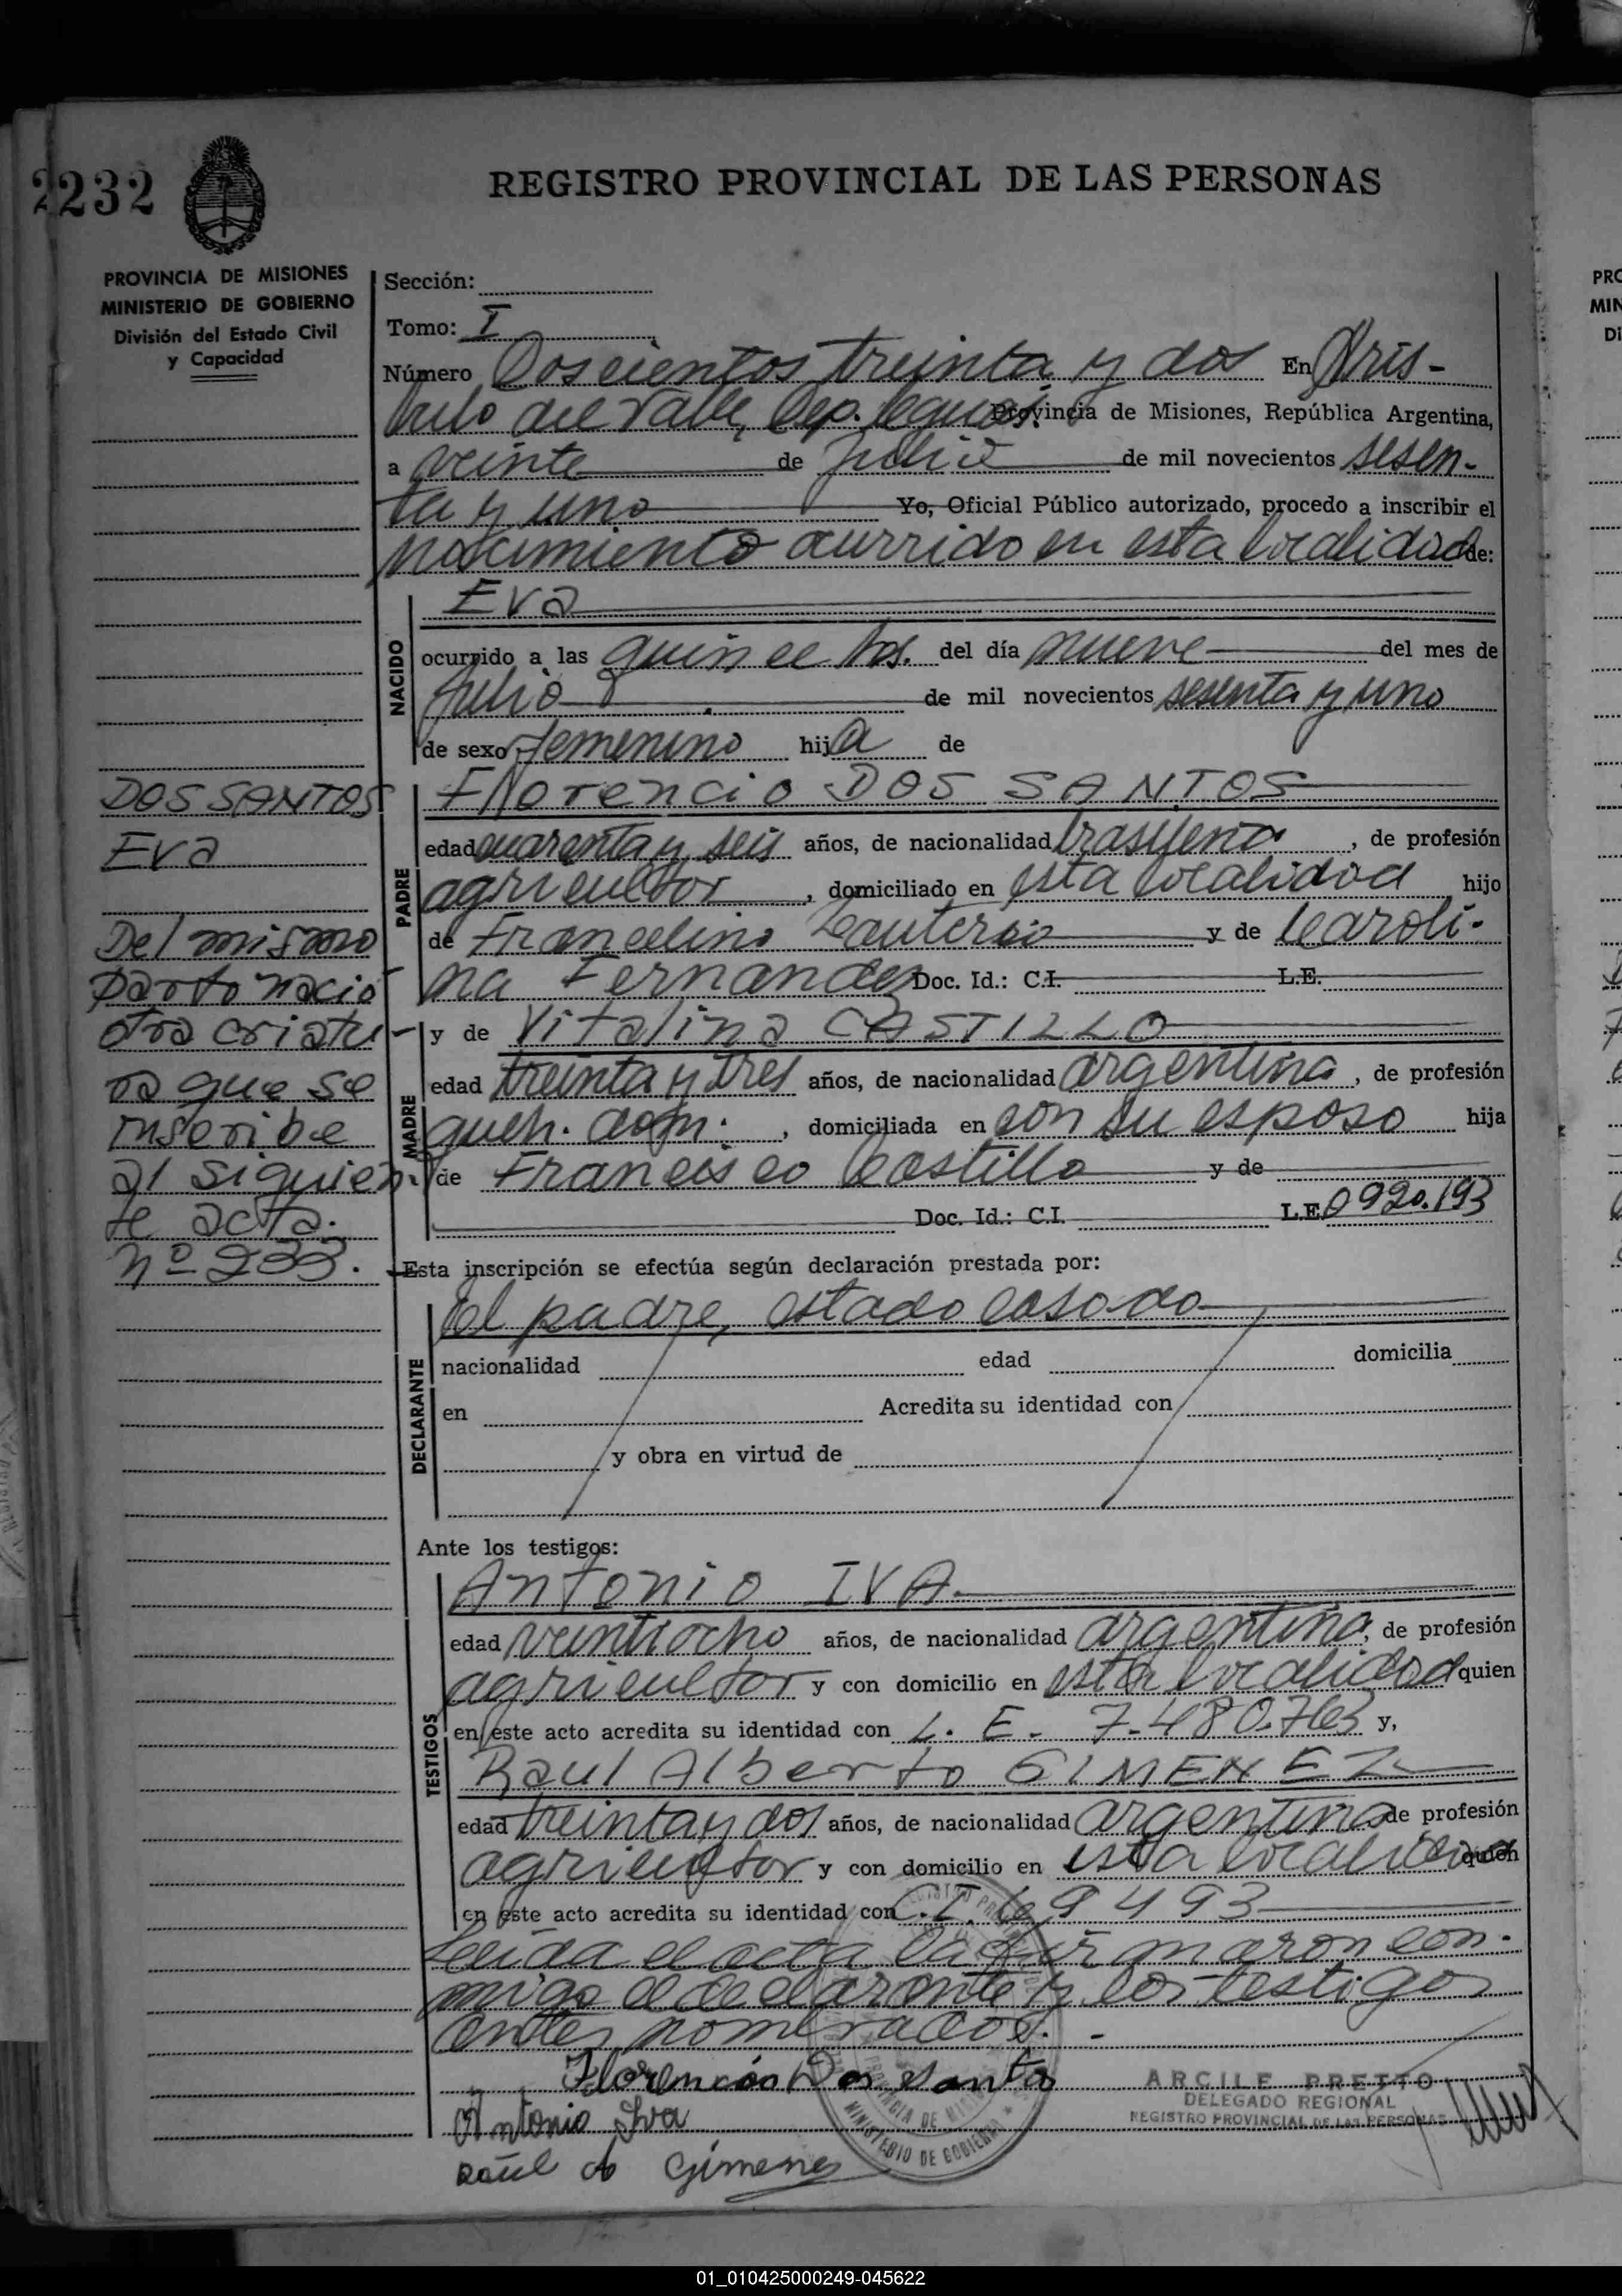 2232
REGISTRO PROVINCIAL DE LAS PERSONAS
PROVINCIA DE MISIONES
MINISTERIO DE GOBIERNO
División del Estado Civil
y Capacidad
Sección:
Tomo: I
Número Doscientos treinta y dos En Aris-
tulo del Valle, Dep. Provincia de Misiones, República Argentina,
a veinte de julio de mil novecientos sesen-
ta y uno Yo, Oficial Público autorizado, procedo a inscribir el
nacimiento ocurrido en esta localidad de:
NACIDO
Eva
ocurrido a las quince hs. del día nueve del mes de
Julio de mil novecientos sesenta y uno
de sexo femenino hija de
DOS SANTOS
Eva
Del mismo
parto nació
otra criatu-
ra que se
inscribe
al siguien-
te acta.
nº 233.
PADRE
Florencio DOS SANTOS
edad cuarenta y seis años, de nacionalidad brasileña, de profesión
agricultor, domiciliado en esta localidad hijo
de Francelino y de Caroli-
na Fernandez Doc. Id.: C.I. L.E.
MADRE
y de Vitalina CASTILLO
edad treinta y tres años, de nacionalidad argentina, de profesión
queh. dom., domiciliada en con su esposo hija
de Francisco Castillo y de
Doc. Id.: C.I. L.E. 0920.193
Esta inscripción se efectúa según declaración prestada por:
DECLARANTE
el padre, estado casado
nacionalidad edad domicilia
en Acredita su identidad con
y obra en virtud de
Ante los testigos:
TESTIGOS
Antonio IVA
edad veintiocho años, de nacionalidad argentina, de profesión
agricultor y con domicilio en esta localidad quien
en este acto acredita su identidad con L. E. 7.480.763 y,
Raul Alberto GIMENEZ
edad treinta y dos años, de nacionalidad argentina de profesión
agricultor y con domicilio en esta localidad quien
en este acto acredita su identidad con C.I. 69493
Leida el acta la firmaron con-
migo el declarante y los testigos
antes nombrados.
Florencio Dos santos
Antonio Iva
Raúl A Gimenez
ARCILE PRETTO
DELEGADO REGIONAL
REGISTRO PROVINCIAL DE LAS PERSONAS
MINISTERIO DE GOBIERNO
PRO
MIN
Di
01_010425000249-045622